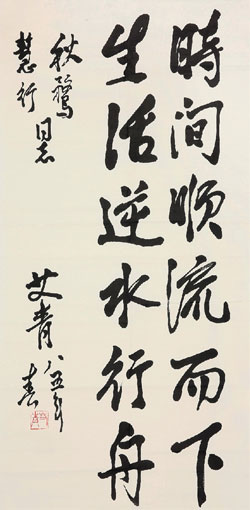 時间顺流而下
生活逆水行舟
秋鸶
慧行 同志
艾青 八五年
春